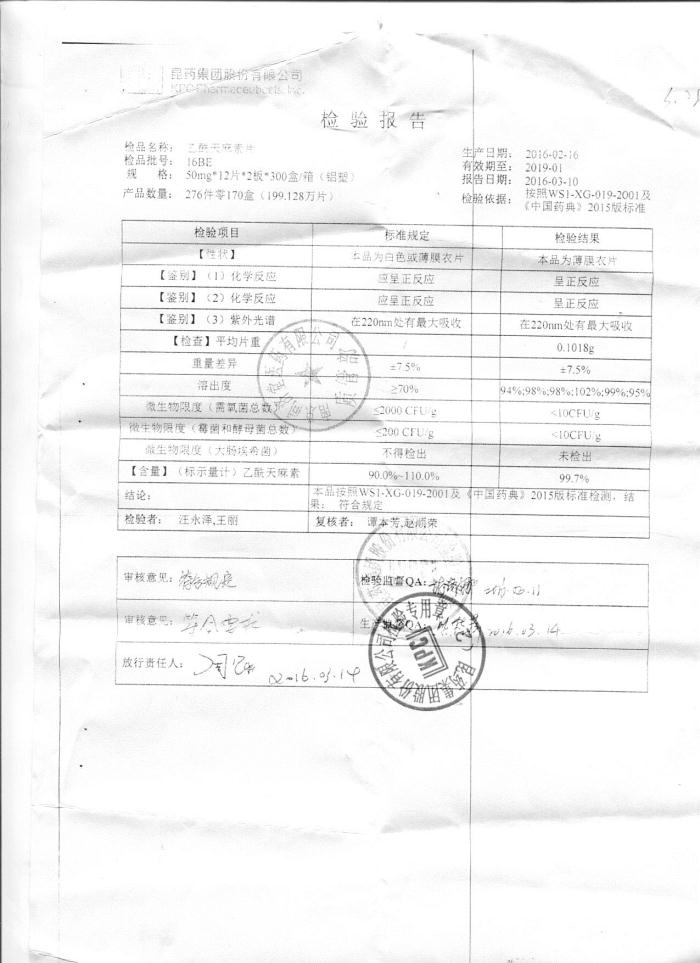 昆药集团股份有限公司
KPC Pharmaceuticals, Inc.
检验报告
检品名称: 乙酰天麻素片
生产日期: 2016-02-16
检品批号: 16BE
有效期至: 2019-01
规 格: 50mg*12片*2板*300盒/箱（铝塑）
报告日期: 2016-03-10
产品数量: 276件零170盒（199.128万片）
检验依据: 按照WS1-XG-019-2001及《中国药典》2015版标准
检验项目 标准规定 检验结果
【性状】 本品为白色或薄膜衣片 本品为薄膜衣片
【鉴别】（1）化学反应 应呈正反应 呈正反应
【鉴别】（2）化学反应 应呈正反应 呈正反应
【鉴别】（3）紫外光谱 在220nm处有最大吸收 在220nm处有最大吸收
【检查】平均片重 / 0.1018g
重量差异 ±7.5% ±7.5%
溶出度 ≥70% 94%;98%;98%;102%;99%;95%
微生物限度（需氧菌总数） ≤2000 CFU/g <10CFU/g
微生物限度（霉菌和酵母菌总数） ≤200 CFU/g <10CFU/g
微生物限度（大肠埃希菌） 不得检出 未检出
【含量】（标示量计）乙酰天麻素 90.0%~110.0% 99.7%
结论: 本品按照WS1-XG-019-2001及《中国药典》2015版标准检测，结
果: 符合规定
检验者: 汪永泽,王丽 复核者: 谭本芳,赵顺荣
审核意见: 符合规定 检验监督QA:
审核意见: 符合要求 生产监督QA: 2016.03.14
放行责任人: 2016.03.14
昆药集团股份有限公司检验专用章
KPC